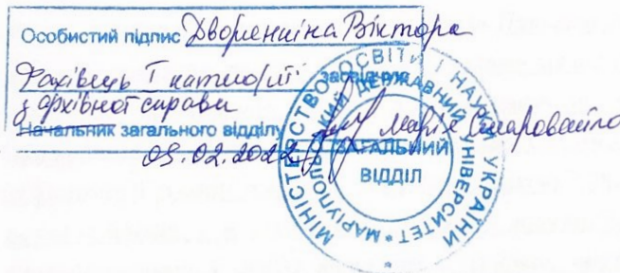 Особистий підпис Дворенкіна Віктора
Фахівець І категорії засвідчую
з архівної справи
Начальник загального відділу Марія
09.02.2022
МІНІСТЕРСТВО ОСВІТИ І НАУКИ УКРАЇНИ
МАРІУПОЛЬСЬКИЙ ДЕРЖАВНИЙ УНІВЕРСИТЕТ
ЗАГАЛЬНИЙ
ВІДДІЛ